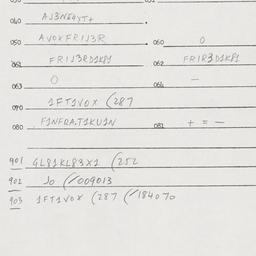 040 AJ3N54YT+
050 AVOXFRIJ3R 060 O
061 FRIJ3RD1KP1 062 FRIR3D1KP1
063 O 064 —
070 1FT1VOX (287
080 F1NFRA.T1KU1N 081 + = —
901 4L81KL83X1 (252
902 Jo (/009013
903 1FT1VOX (287 (/184070